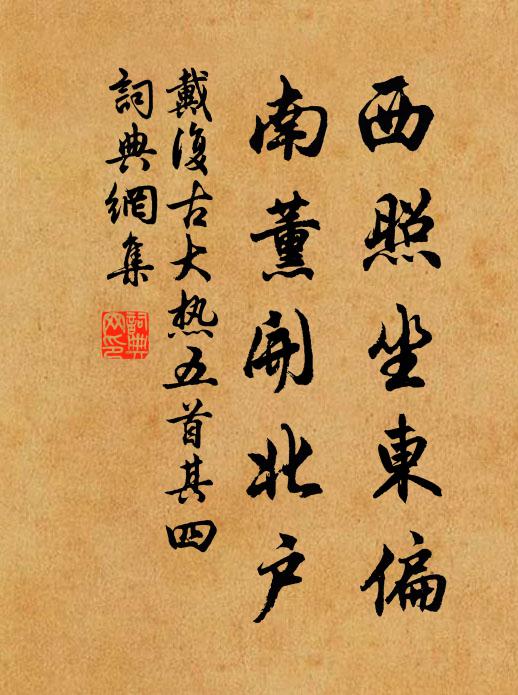 西照坐東偏
南薰開北户
戴復古大热五首其四
詞典網集
詞典
网印